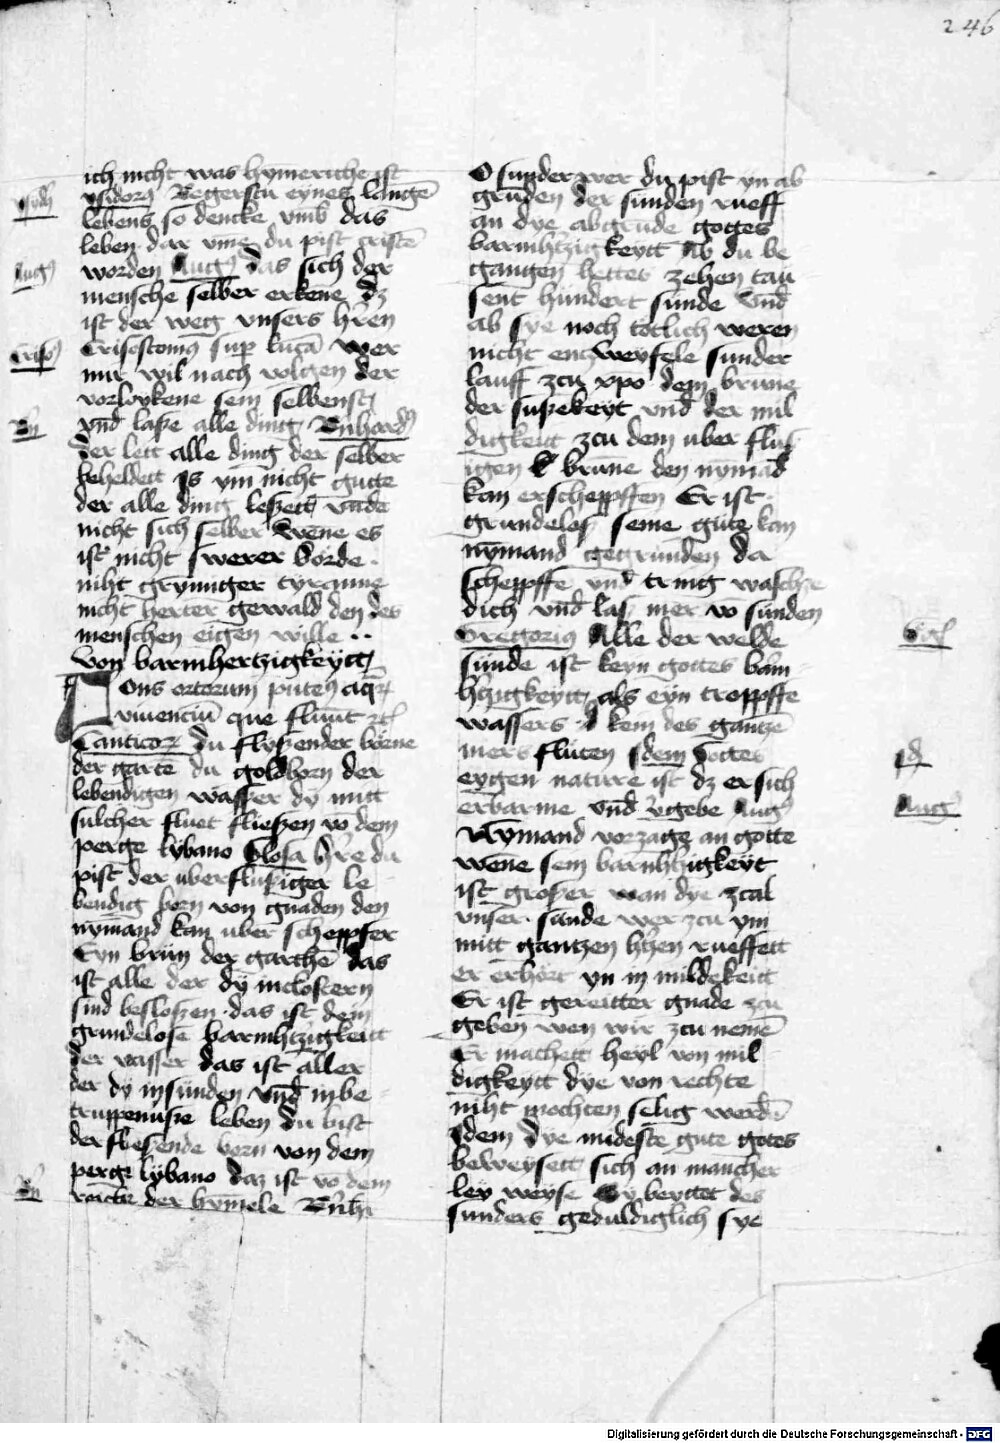 246
ich nicht was hymeriche ist
ysidorꝫ Begerstu eynes langē
lebens so dencke vmb das
leben dar vme du pist cristē
worden Augꝫ das sich der
mensche selber erkene dz
ist der weg vnsers hren
Crisostomꝫ sup lucā wer
mir wil nach volgen der
vorloykene sem selbenst
vnd laße alle ding Bnhardꝫ
der lett alle ding der selber
beheldett Is ym nicht gutte
der alle ding leßett vnde
nicht sich selber Wene es
ist nicht swerer borde
niht grymiger tyranne
nicht herter gewald den des
menschen eigen wille
Von barmhertzigkeytt
Fons ortorum puteꝫ aqꝝ
viuenciū que fluūt rcꝉ
Canticoꝝ du flyßender börne
der gartē du goldborn der
lebendigen wasser dy mitt
sulcher fluet fließen vō dem
perge lybano Glosa hre du
pist der uberflußiger le
bendig born von gnaden den
nymand kan uber scheppfer
Eyn brūn der garthē das
ist alle der dy in clostern
sind besloßen das ist dem
grundelose barmhtzigkeitt
der wasser das ist aller
der dy in sunden vnd in be
truppenuße leben du bist
der fleßende born von dem
perge lybano daz ist vō dem
der hymele Bnhꝛ
O sunder wer du pist yn ab
grūden der sunden rueff
an dye abgrūde gottes
barmhtzigkeytt Ab du be
gangen hettes zehen tau
sent hundert sunde Vnd
ab sye noch totlich weren
nicht entzweyfele sunder
lauff zcu xpo dem brune
der sußekeyt vnd der mil
digkeitt zcu dem uber fluß
igen brune den nymād
kan erscheppffen Er ist
grundeloß seine güte kan
nymand gegrunden da
scheppffe vnd tring waschze
dich vnd las mer vō sunden
Gregoriꝫ Alle der welde
sunde ist keyn gottes bam
htzigkeytt als eyn troppffe
wassers kein des gantzē
mers fluten Idem Gottes
eygen nature ist dz er sich
erbarme vnd vgebe Augꝫ
Nymand vorzage an gotte
wene sein barmhtzigkeyt
ist großer wan dye zcal
vnser sunde wer zcu ym
mitt gantzen htzen rueffett
er erhört yn in mildekeitt
Er ist gereitter gnade zcu
geben wen wir zcu nemē
Er machett heyl von mil
digkeytt dye von rechte
niht mochten selig werdē
Idem dye mideste gute gotes
beweysett sich an mancher
ley weyse Sy beyttet des
sunders geduldiglich sye
Augꝫ
Crisoꝫ
Bn
Bn
Idē
Augꝫ
Digitalisierung gefördert durch die Deutsche Forschungsgemeinschaft - DFG